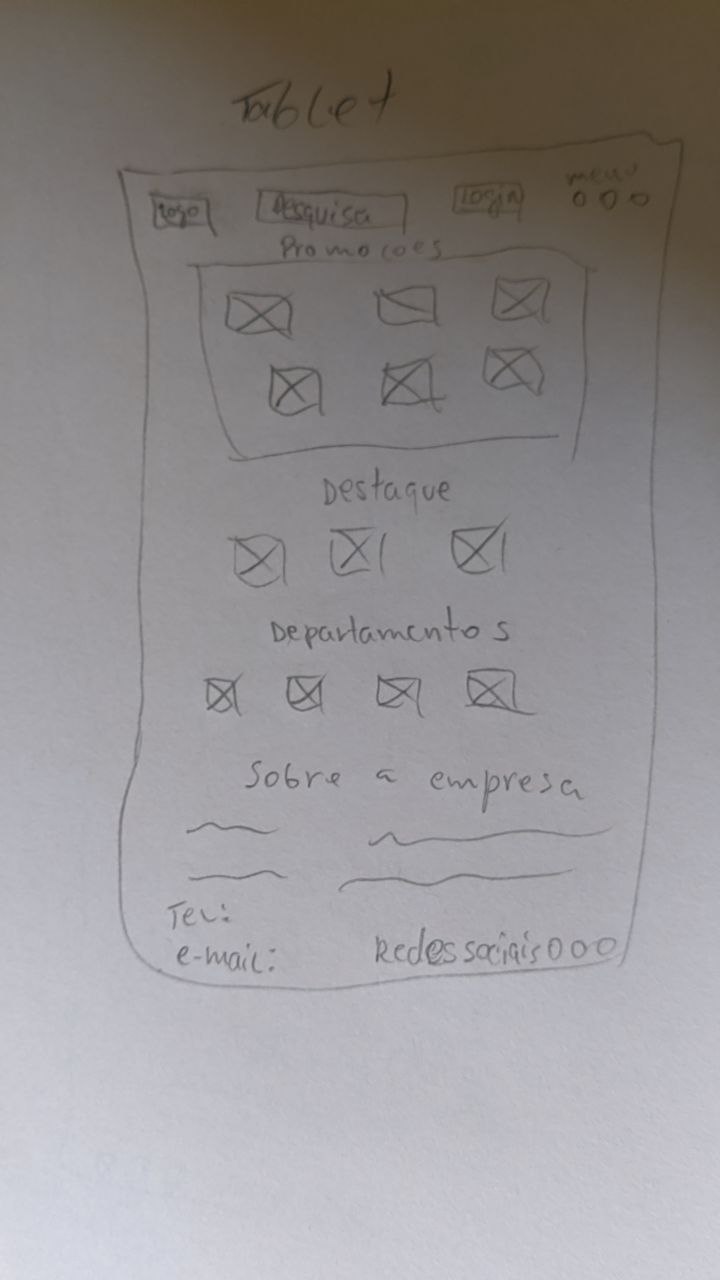 Tablet
menu
Logo Pesquisa Login
Promocoes
Destaque
Departamentos
Sobre a empresa
Tel:
e-mail: Redes sociais